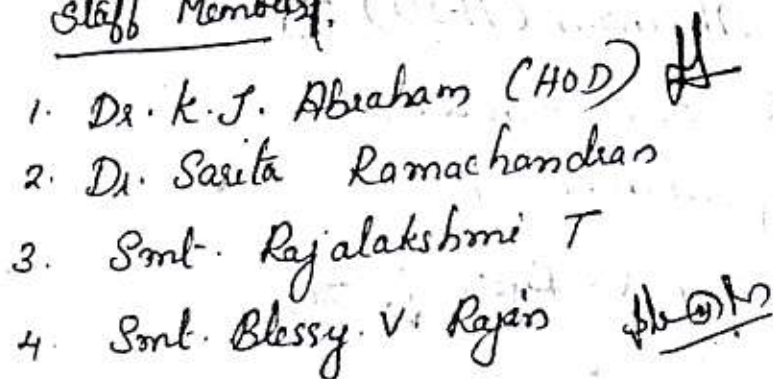 Staff Members.
1. Dr. K. J. Abraham (HOD)
2. Dr. Sarita Ramachandran
3. Smt. Rajalakshmi T
4. Smt. Blessy. V. Rajan